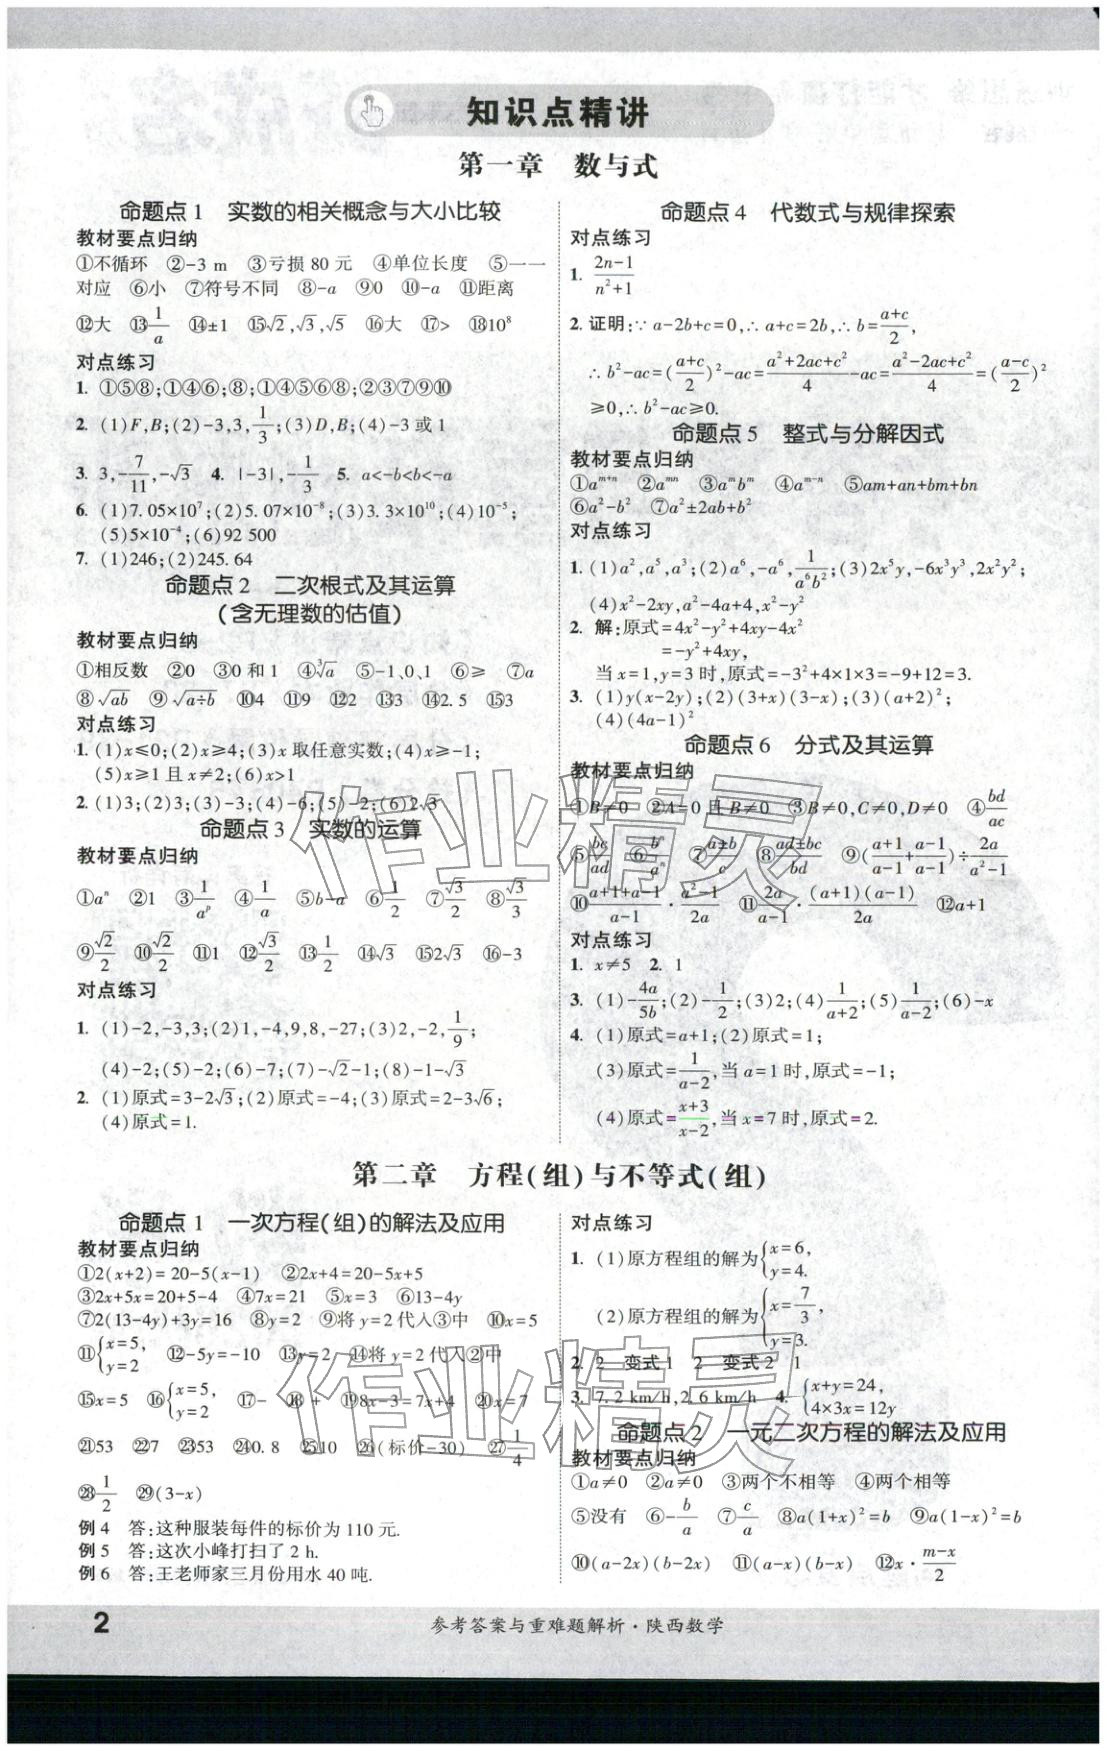 知识点精讲
第一章 数与式
命题点1 实数的相关概念与大小比较
教材要点归纳
①不循环 ②-3 m ③亏损 80 元 ④单位长度 ⑤一一
对应 ⑥小 ⑦符号不同 ⑧-a ⑨0 ⑩-a ⑪距离
⑫大 ⑬1/a ⑭±1 ⑮√2,√3,√5 ⑯大 ⑰> ⑱10⁸
对点练习
1. ①⑤⑧;①④⑥;⑧;①④⑤⑥⑧;②③⑦⑨⑩
2. (1)F,B;(2)-3,3,1/3;(3)D,B;(4)-3 或 1
3. 3,-7/11,-√3 4. |-3|,-1/3 5. a<-b<b<-a
6. (1)7.05×10⁷;(2)5.07×10⁻⁸;(3)3.3×10¹⁰;(4)10⁻⁵;
(5)5×10⁻⁴;(6)92 500
7. (1)246;(2)245.64
命题点2 二次根式及其运算
(含无理数的估值)
教材要点归纳
①相反数 ②0 ③0 和 1 ④∛a ⑤-1、0、1 ⑥≥ ⑦a
⑧√ab ⑨√a÷b ⑩4 ⑪9 ⑫2 ⑬3 ⑭2.5 ⑮3
对点练习
1. (1)x≤0;(2)x≥4;(3)x 取任意实数;(4)x≥-1;
(5)x≥1 且 x≠2;(6)x>1
2. (1)3;(2)3;(3)-3;(4)-6;(5)-2;(6)2√3
命题点3 实数的运算
教材要点归纳
①aⁿ ②1 ③1/aᵖ ④1/a ⑤b-a ⑥1/2 ⑦√3/2 ⑧√3/3
⑨√2/2 ⑩√2/2 ⑪1 ⑫√3/2 ⑬1/2 ⑭√3 ⑮2√3 ⑯-3
对点练习
1. (1)-2,-3,3;(2)1,-4,9,8,-27;(3)2,-2,1/9;
(4)-2;(5)-2;(6)-7;(7)-√2-1;(8)-1-√3
2. (1)原式=3-2√3;(2)原式=-4;(3)原式=2-3√6;
(4)原式=1.
命题点4 代数式与规律探索
对点练习
1. (2n-1)/(n²+1)
2. 证明:∵a-2b+c=0,∴a+c=2b,∴b=(a+c)/2,
∴b²-ac=((a+c)/2)²-ac=(a²+2ac+c²)/4-ac=(a²-2ac+c²)/4=((a-c)/2)²
≥0,∴b²-ac≥0.
命题点5 整式与分解因式
教材要点归纳
①aᵐ⁺ⁿ ②aᵐⁿ ③aᵐbᵐ ④aᵐ⁻ⁿ ⑤am+an+bm+bn
⑥a²-b² ⑦a²±2ab+b²
对点练习
1. (1)a²,a⁵,a³;(2)a⁶,-a⁶,1/(a⁶b²);(3)2x⁵y,-6x³y³,2x²y²;
(4)x²-2xy,a²-4a+4,x²-y²
2. 解:原式=4x²-y²+4xy-4x²
=-y²+4xy,
当 x=1,y=3 时,原式=-3²+4×1×3=-9+12=3.
3. (1)y(x-2y);(2)(3+x)(3-x);(3)(a+2)²;
(4)(4a-1)²
命题点6 分式及其运算
教材要点归纳
①B≠0 ②A=0 且 B≠0 ③B≠0,C≠0,D≠0 ④bd/ac
⑤bc/ad ⑥bⁿ/aⁿ ⑦(a±b)/c ⑧(ad±bc)/bd ⑨((a+1)/(a-1)+(a-1)/(a-1))÷2a/(a²-1)
⑩(a+1+a-1)/(a-1)·(a²-1)/2a ⑪2a/(a-1)·(a+1)(a-1)/2a ⑫a+1
对点练习
1. x≠5 2. 1
3. (1)-4a/5b;(2)-1/2;(3)2;(4)1/(a+2);(5)1/(a-2);(6)-x
4. (1)原式=a+1;(2)原式=1;
(3)原式=1/(a-2),当 a=1 时,原式=-1;
(4)原式=(x+3)/(x-2),当 x=7 时,原式=2.
第二章 方程(组)与不等式(组)
命题点1 一次方程(组)的解法及应用
教材要点归纳
①2(x+2)=20-5(x-1) ②2x+4=20-5x+5
③2x+5x=20+5-4 ④7x=21 ⑤x=3 ⑥13-4y
⑦2(13-4y)+3y=16 ⑧y=2 ⑨将 y=2 代入③中 ⑩x=5
⑪{x=5, y=2 ⑫-5y=-10 ⑬y=2 ⑭将 y=2 代入②中
⑮x=5 ⑯{x=5, y=2 ⑰- ⑱+ ⑲8x-3=7x+4 ⑳x=7
㉑53 ㉒7 ㉓53 ㉔0.8 ㉕10 ㉖(标价-30) ㉗1/4
㉘1/2 ㉙(3-x)
例 4 答:这种服装每件的标价为 110 元.
例 5 答:这次小峰打扫了 2 h.
例 6 答:王老师家三月份用水 40 吨.
对点练习
1. (1)原方程组的解为{x=6, y=4.
(2)原方程组的解为{x=7/3, y=3.
2. 2 变式 1 2 变式 2 1
3. 7.2 km/h,2.6 km/h 4. {x+y=24, 4×3x=12y
命题点2 一元二次方程的解法及应用
教材要点归纳
①a≠0 ②a≠0 ③两个不相等 ④两个相等
⑤没有 ⑥-b/a ⑦c/a ⑧a(1+x)²=b ⑨a(1-x)²=b
⑩(a-2x)(b-2x) ⑪(a-x)(b-x) ⑫x·(m-x)/2
2
参考答案与重难题解析·陕西数学
作业精灵
作业精灵